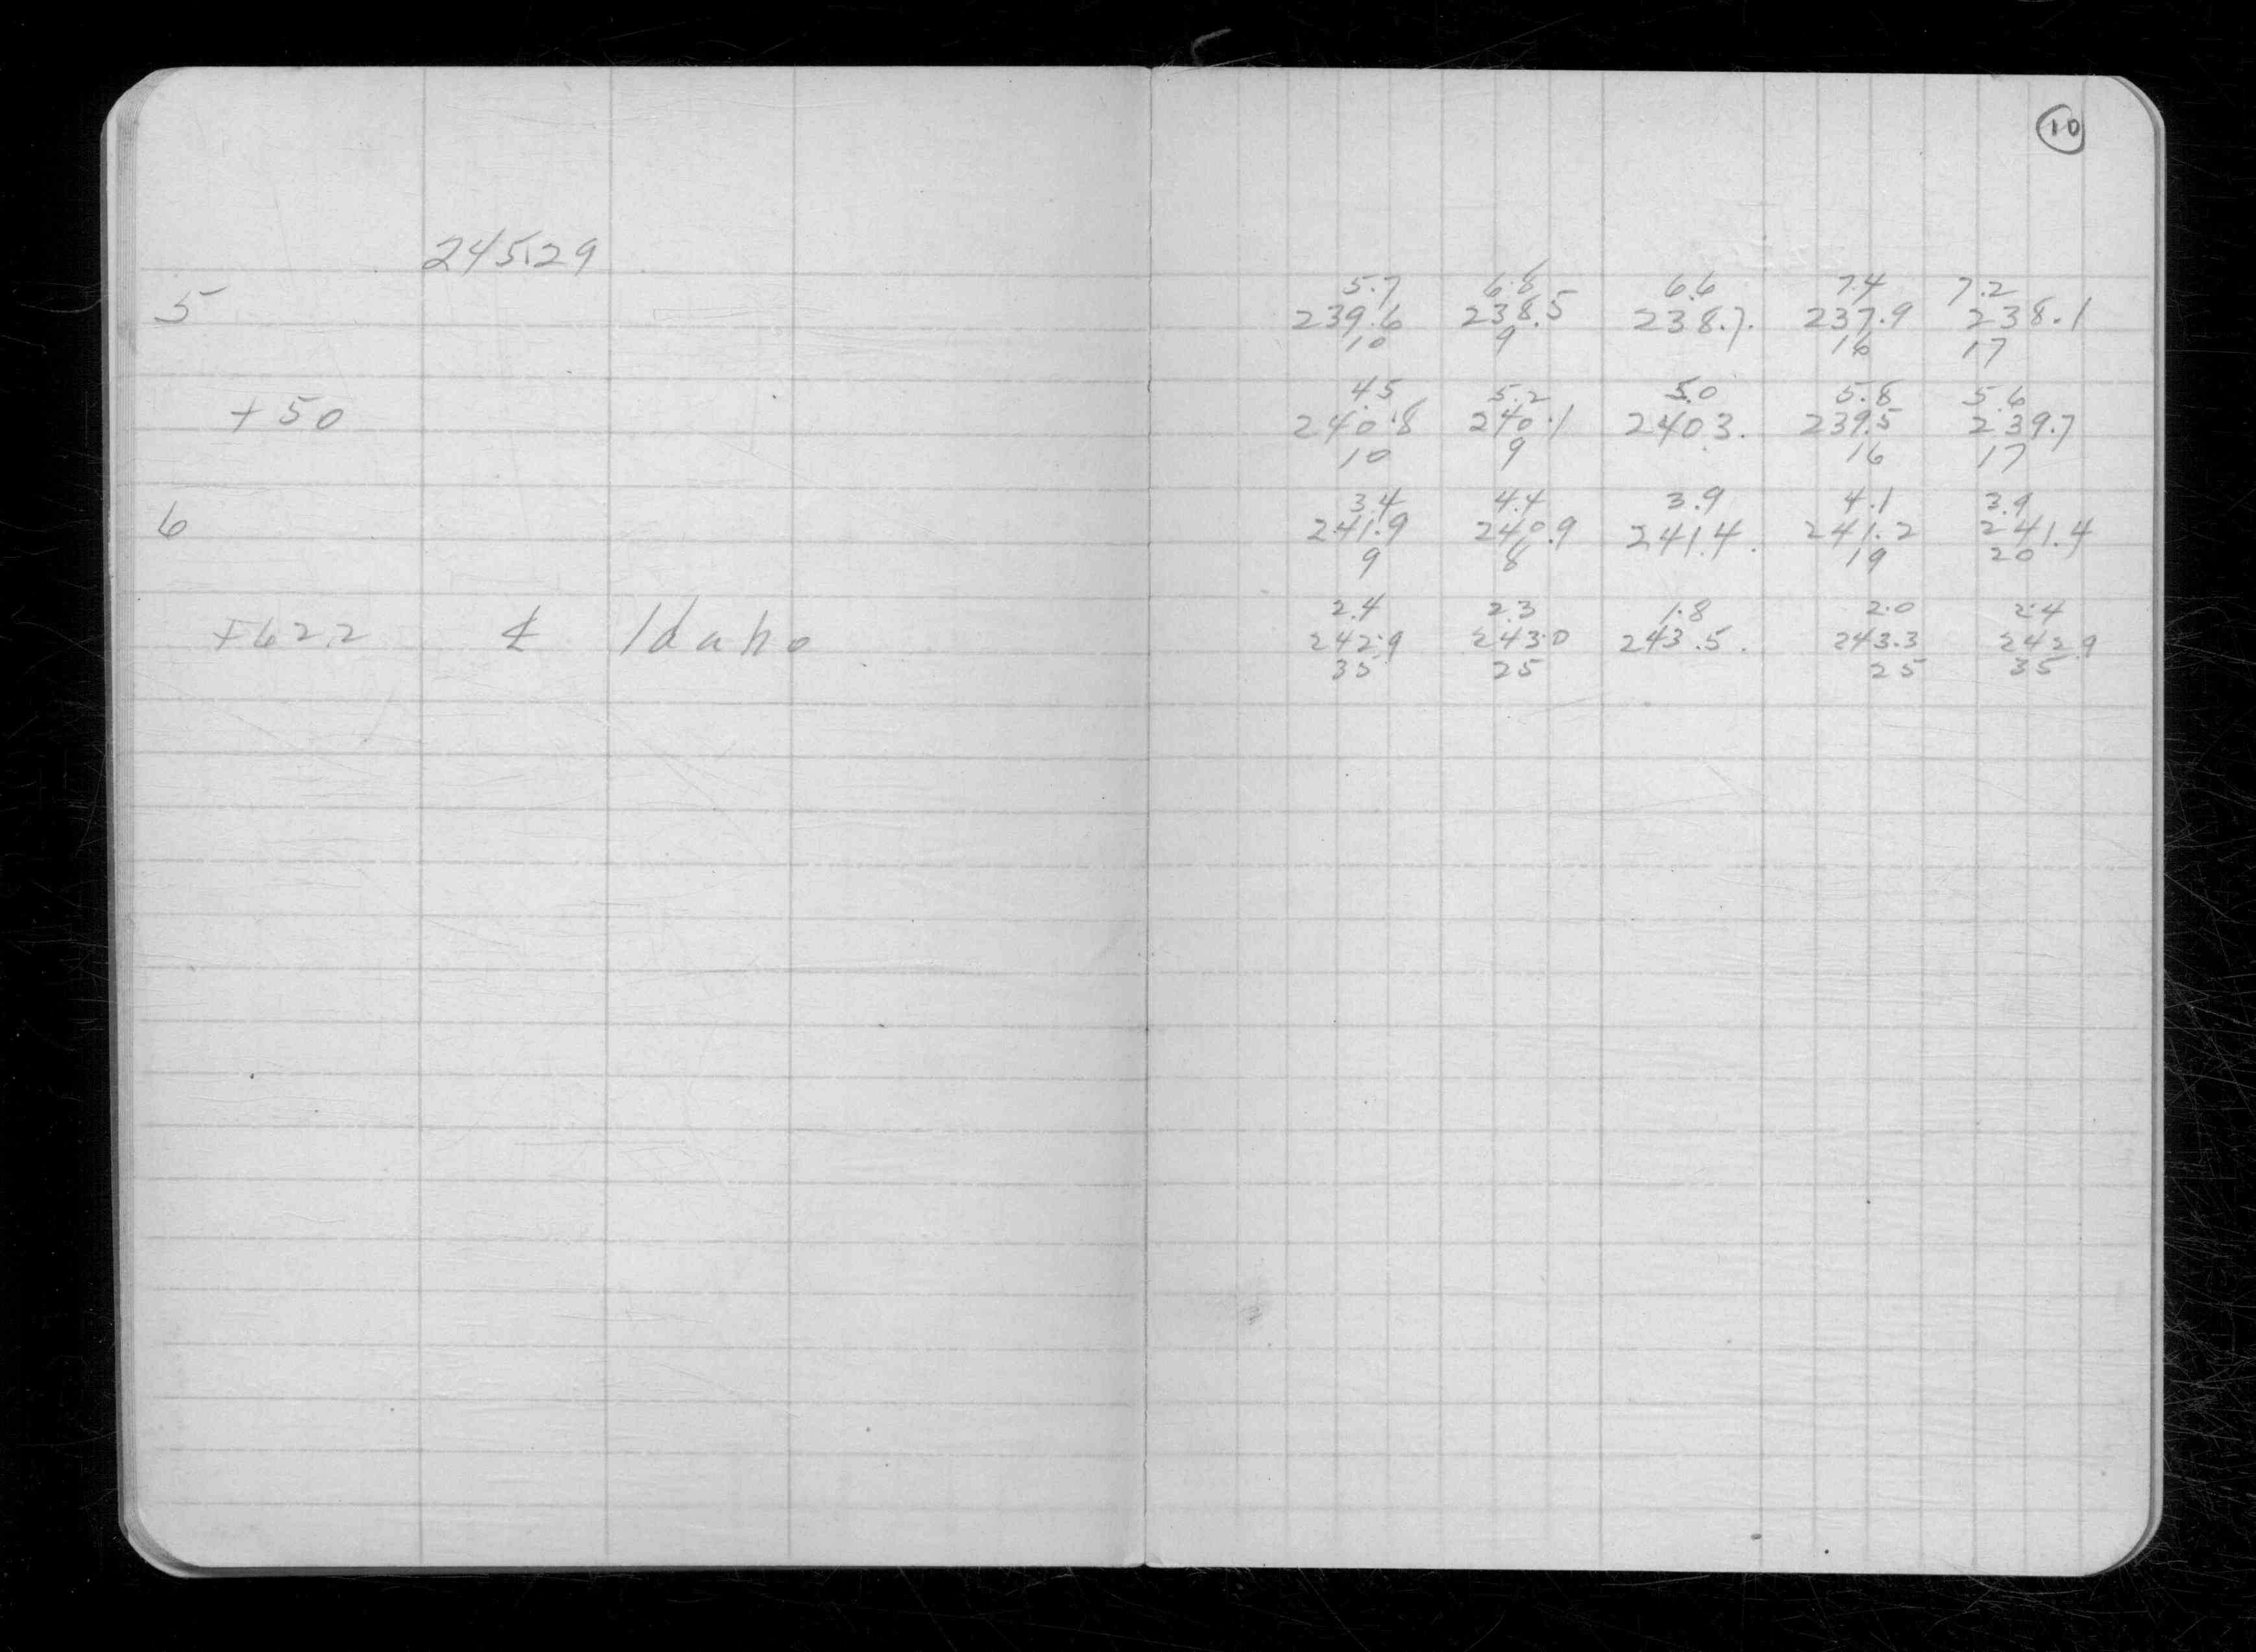 10
245.29
5.7 6.8 6.6 7.4 7.2
5 239.6 238.5 238.7. 237.9 238.1
10 9 16 17
4.5 5.2 5.0 5.8 5.6
+50 240.8 240.1 240.3. 239.5 239.7
10 9 16 17
3.4 4.4 3.9 4.1 3.9
6 241.9 240.9 241.4. 241.2 241.4
9 8 19 20
2.4 2.3 1.8 2.0 2.4
+62.2 ℄ Idaho 242.9 243.0 243.5. 243.3 242.9
35 25 25 35